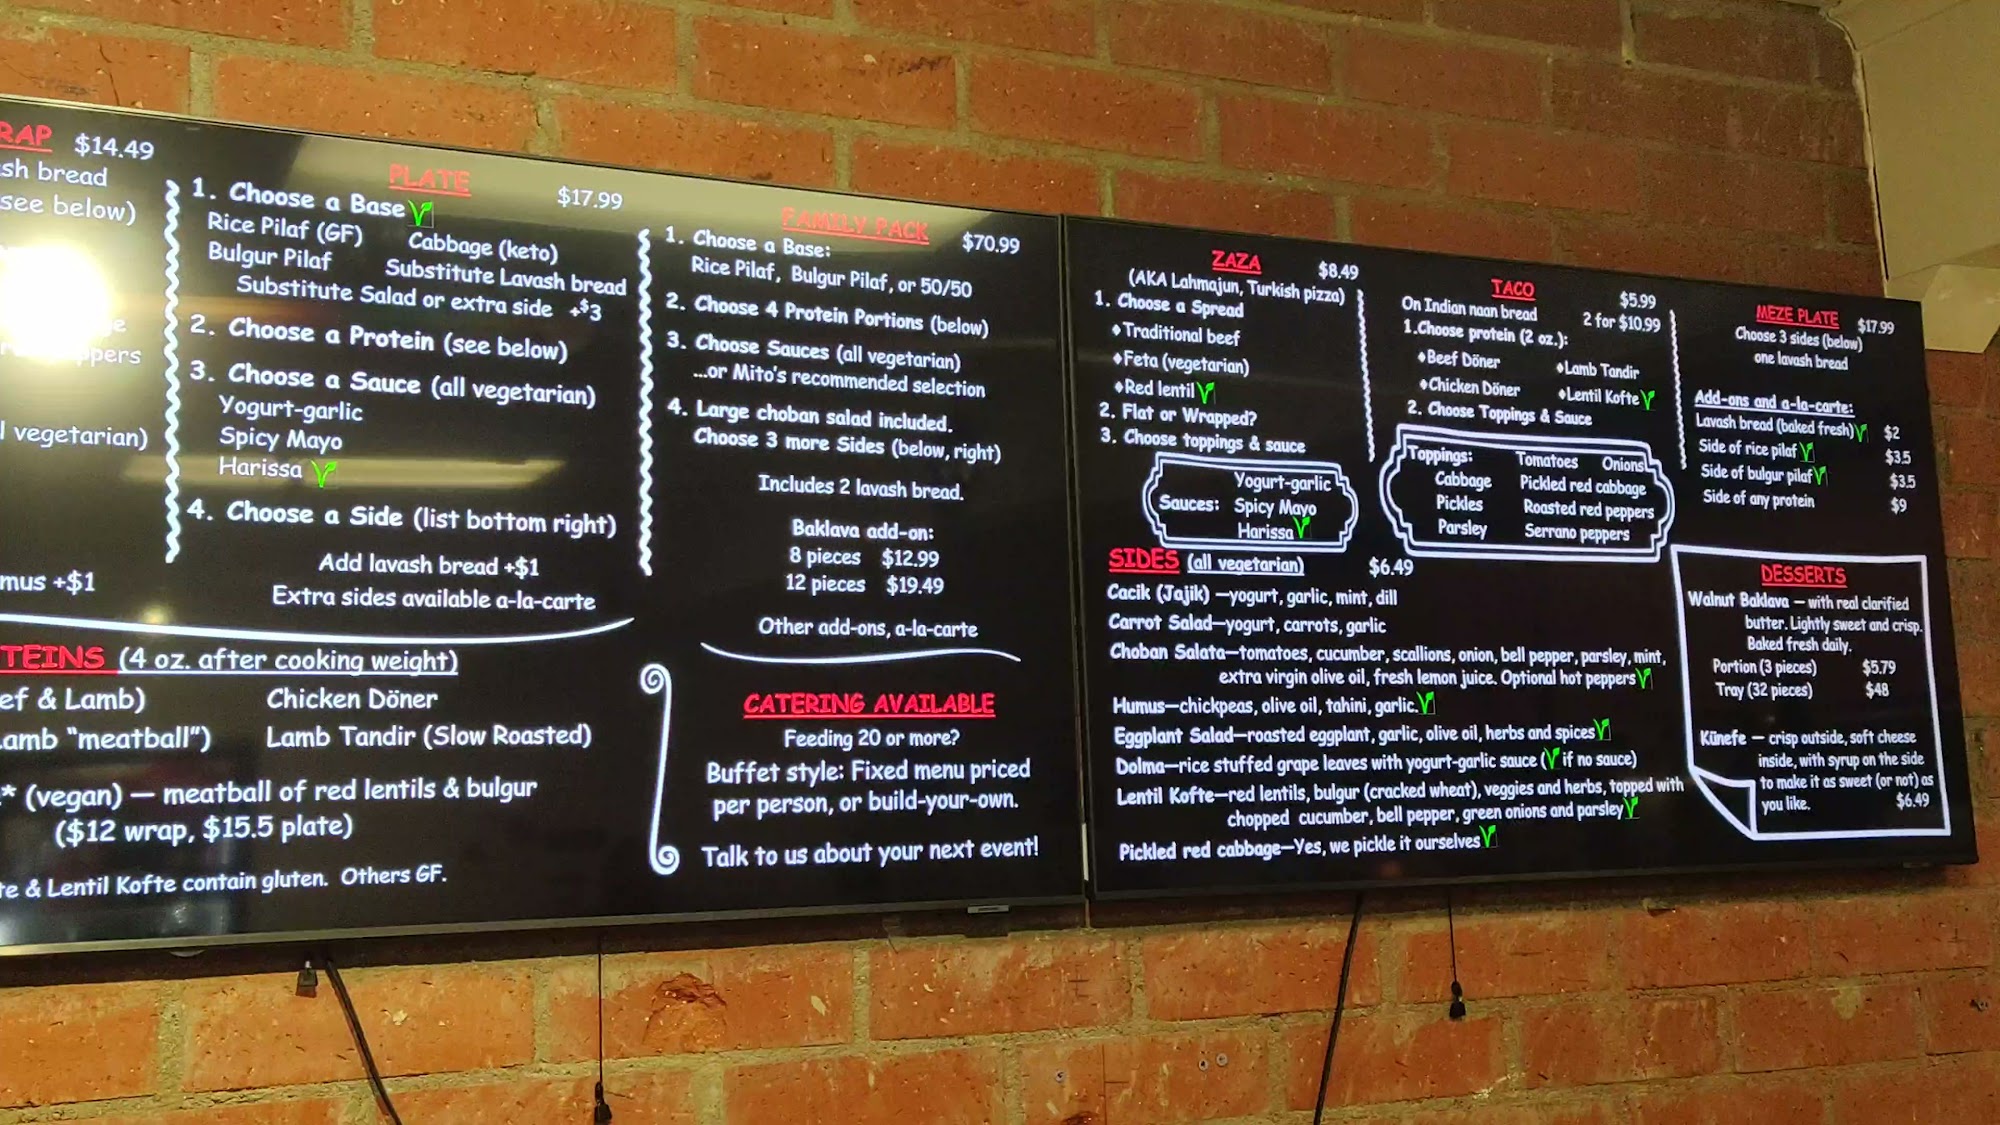 RAP $14.49
sh bread
see below)
ppers
l vegetarian)
mus +$1
PLATE $17.99
1. Choose a Base V
Rice Pilaf (GF) Cabbage (keto)
Bulgur Pilaf Substitute Lavash bread
Substitute Salad or extra side +$3
2. Choose a Protein (see below)
3. Choose a Sauce (all vegetarian)
Yogurt-garlic
Spicy Mayo
Harissa V
4. Choose a Side (list bottom right)
Add lavash bread +$1
Extra sides available a-la-carte
TEINS (4 oz. after cooking weight)
ef & Lamb) Chicken Döner
amb "meatball") Lamb Tandir (Slow Roasted)
* (vegan) — meatball of red lentils & bulgur
($12 wrap, $15.5 plate)
te & Lentil Kofte contain gluten. Others GF.
FAMILY PACK $70.99
1. Choose a Base:
Rice Pilaf, Bulgur Pilaf, or 50/50
2. Choose 4 Protein Portions (below)
3. Choose Sauces (all vegetarian)
...or Mito's recommended selection
4. Large choban salad included.
Choose 3 more Sides (below, right)
Includes 2 lavash bread.
Baklava add-on:
8 pieces $12.99
12 pieces $19.49
Other add-ons, a-la-carte
CATERING AVAILABLE
Feeding 20 or more?
Buffet style: Fixed menu priced
per person, or build-your-own.
Talk to us about your next event!
ZAZA $8.49
(AKA Lahmajun, Turkish pizza)
1. Choose a Spread
♦Traditional beef
♦Feta (vegetarian)
♦Red lentil V
2. Flat or Wrapped?
3. Choose toppings & sauce
Yogurt-garlic
Sauces: Spicy Mayo
Harissa V
TACO $5.99
On Indian naan bread 2 for $10.99
1.Choose protein (2 oz.):
♦Beef Döner ♦Lamb Tandir
♦Chicken Döner ♦Lentil Kofte V
2. Choose Toppings & Sauce
Toppings: Tomatoes Onions
Cabbage Pickled red cabbage
Pickles Roasted red peppers
Parsley Serrano peppers
MEZE PLATE $17.99
Choose 3 sides (below)
one lavash bread
Add-ons and a-la-carte:
Lavash bread (baked fresh) V $2
Side of rice pilaf V $3.5
Side of bulgur pilaf V $3.5
Side of any protein $9
SIDES (all vegetarian) $6.49
Cacik (Jajik) —yogurt, garlic, mint, dill
Carrot Salad—yogurt, carrots, garlic
Choban Salata—tomatoes, cucumber, scallions, onion, bell pepper, parsley, mint,
extra virgin olive oil, fresh lemon juice. Optional hot peppers V
Humus—chickpeas, olive oil, tahini, garlic. V
Eggplant Salad—roasted eggplant, garlic, olive oil, herbs and spices V
Dolma—rice stuffed grape leaves with yogurt-garlic sauce (V if no sauce)
Lentil Kofte—red lentils, bulgur (cracked wheat), veggies and herbs, topped with
chopped cucumber, bell pepper, green onions and parsley V
Pickled red cabbage—Yes, we pickle it ourselves V
DESSERTS
Walnut Baklava — with real clarified
butter. Lightly sweet and crisp.
Baked fresh daily.
Portion (3 pieces) $5.79
Tray (32 pieces) $48
Künefe — crisp outside, soft cheese
inside, with syrup on the side
to make it as sweet (or not) as
you like. $6.49